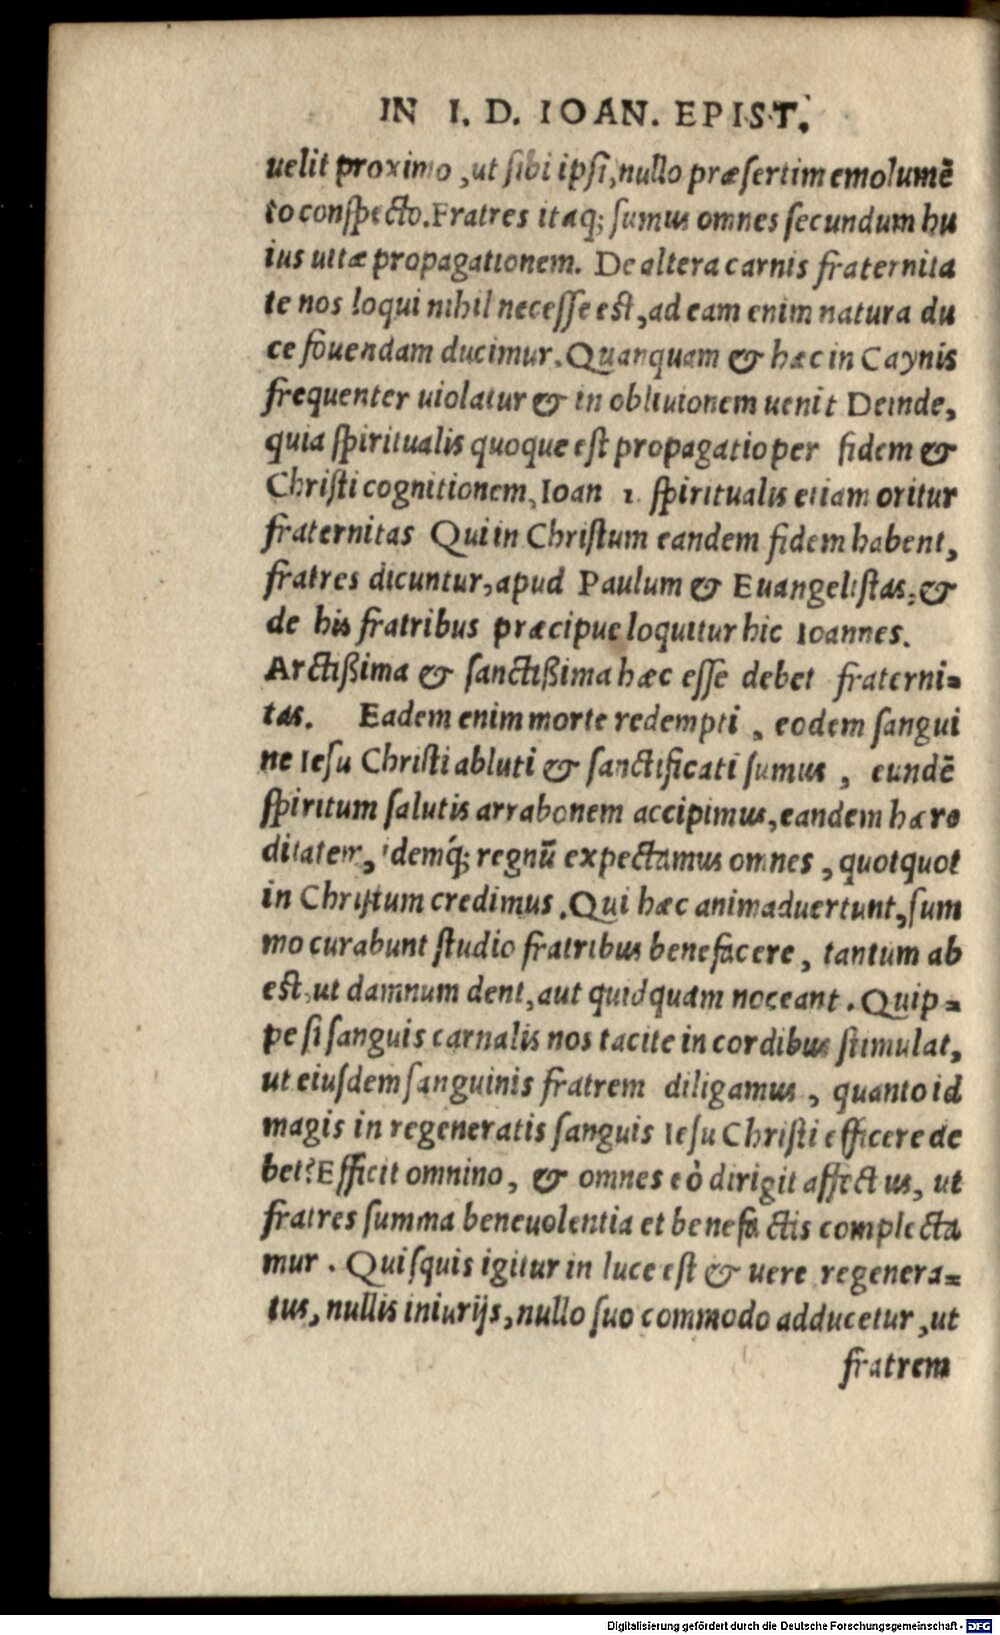 IN I. D. IOAN. EPIST.
uelit proximo, ut sibi ipsi, nullo præsertim emolumē
to conspecto. Fratres itaq; sumus omnes secundum hu
ius uitæ propagationem. De altera carnis fraternita
te nos loqui nihil necesse est, ad eam enim natura du
ce fouendam ducimur. Quanquam & hæc in Caynis
frequenter uiolatur & in obliuionem uenit Deinde,
quia spiritualis quoque est propagatio per fidem &
Christi cognitionem, Ioan 1. spiritualis etiam oritur
fraternitas Qui in Christum eandem fidem habent,
fratres dicuntur, apud Paulum & Euangelistas: &
de his fratribus præcipue loquitur hic Ioannes.
Arctißima & sanctißima hæc esse debet fraterni=
tas. Eadem enim morte redempti, eodem sangui
ne Iesu Christi abluti & sanctificati sumus, eundē
spiritum salutis arrabonem accipimus, eandem hære
ditatem, idemq́; regnū expectamus omnes, quotquot
in Christum credimus. Qui hæc animaduertunt, sum
mo curabunt studio fratribus benefacere, tantum ab
est, ut damnum dent, aut quidquam noceant. Quip=
pe si sanguis carnalis nos tacite in cordibus stimulat,
ut eiusdem sanguinis fratrem diligamus, quanto id
magis in regeneratis sanguis Iesu Christi efficere de
bet? Efficit omnino, & omnes eò dirigit affectus, ut
fratres summa beneuolentia et benefactis complecta
mur. Quisquis igitur in luce est & uere regenera=
tus, nullis iniurijs, nullo suo commodo adducetur, ut
fratrem
Digitalisierung gefördert durch die Deutsche Forschungsgemeinschaft - DFG